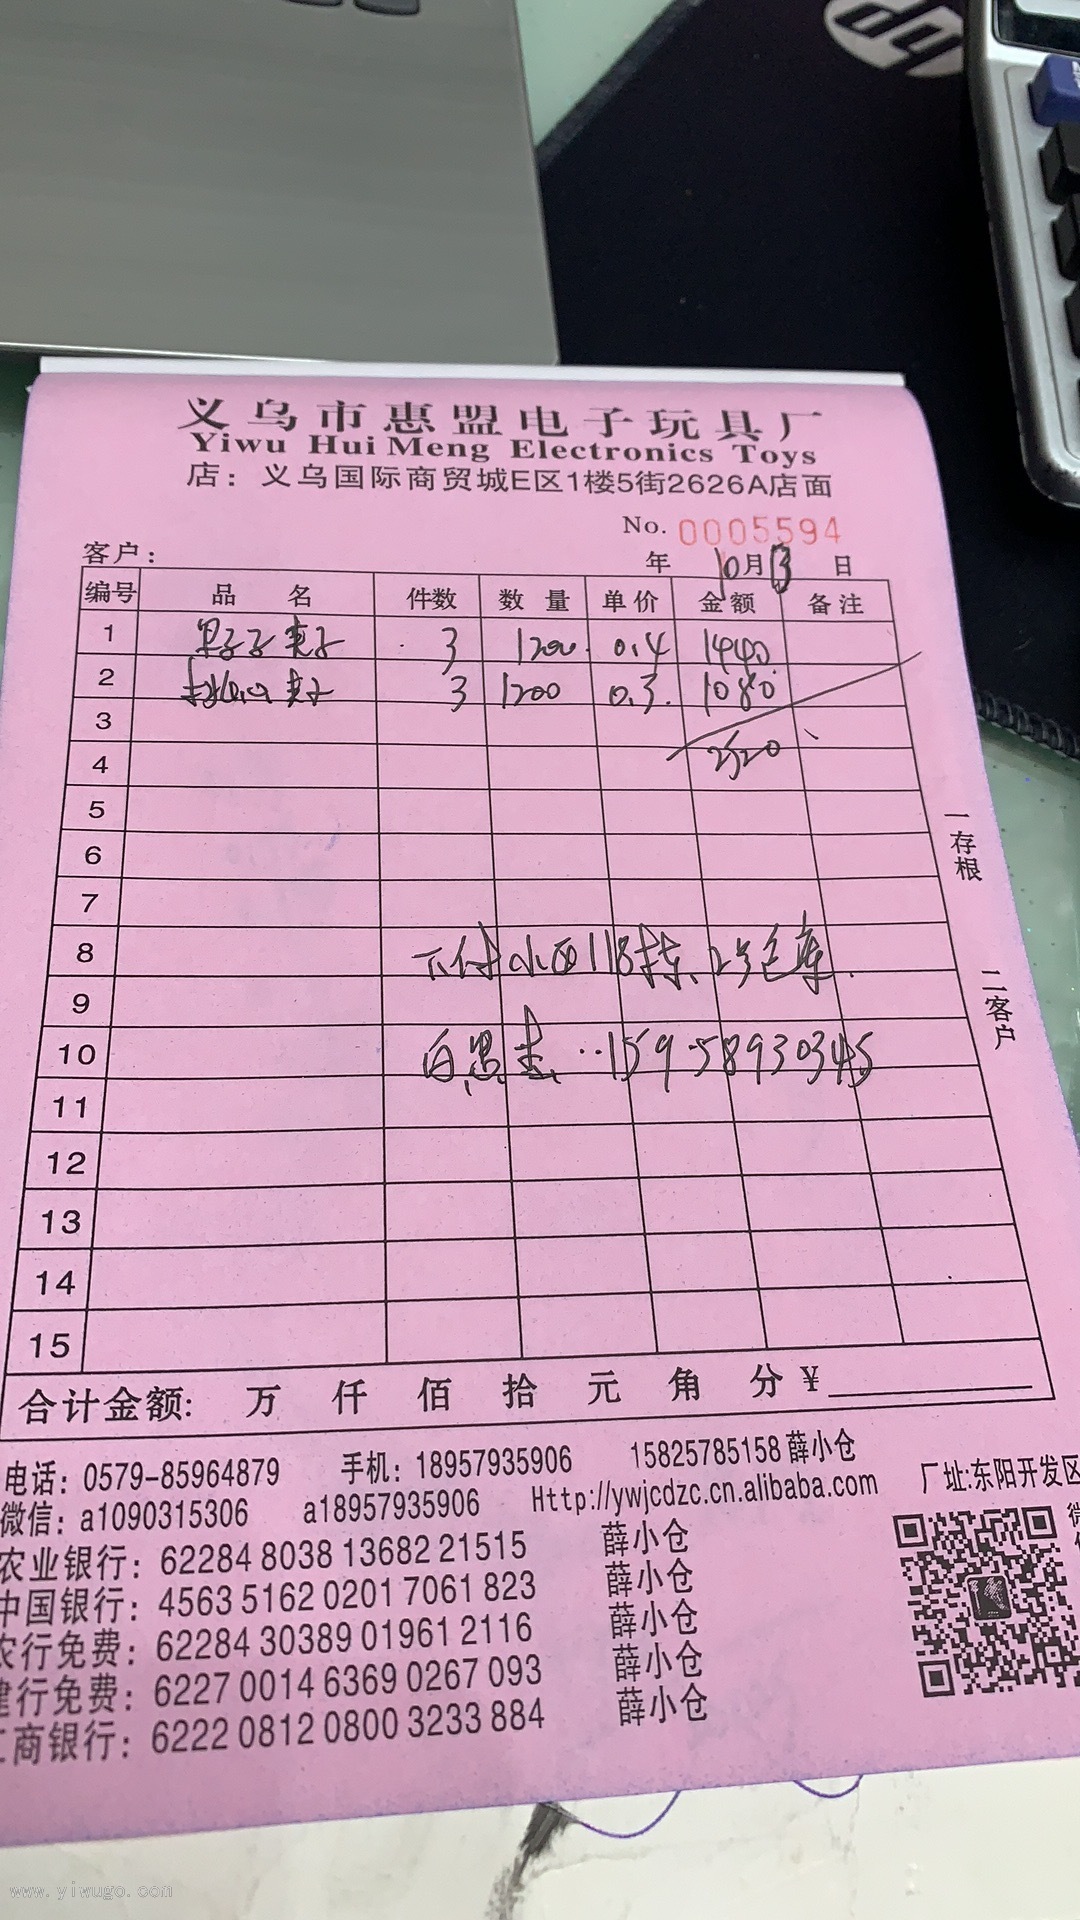 hp
义乌市惠盟电子玩具厂
Yiwu Hui Meng Electronics Toys
店：义乌国际商贸城E区1楼5街2626A店面
No. 0005594
客户： 年 10月13日
编号 品名 件数 数量 单价 金额 备注
1 夹子 3 1200 0.4 1440
2 夹子 3 1200 0.3 1080
3
4 2520
5
6
7
8 118栋 2号仓库
9
10 159 58930345
11
12
13
14
15
一存根
二客户
合计金额: 万 仟 佰 拾 元 角 分 ¥
电话：0579-85964879 手机：18957935906 15825785158 薛小仓
微信：a1090315306 a18957935906 Http://ywjcdzc.cn.alibaba.com
厂址:东阳开发区
农业银行：62284 8038 13682 21515 薛小仓
中国银行：4563 5162 0201 7061 823 薛小仓
农行免费：62284 30389 01961 2116 薛小仓
建行免费：6227 0014 6369 0267 093 薛小仓
工商银行：6222 0812 0800 3233 884 薛小仓
www.yiwugo.com